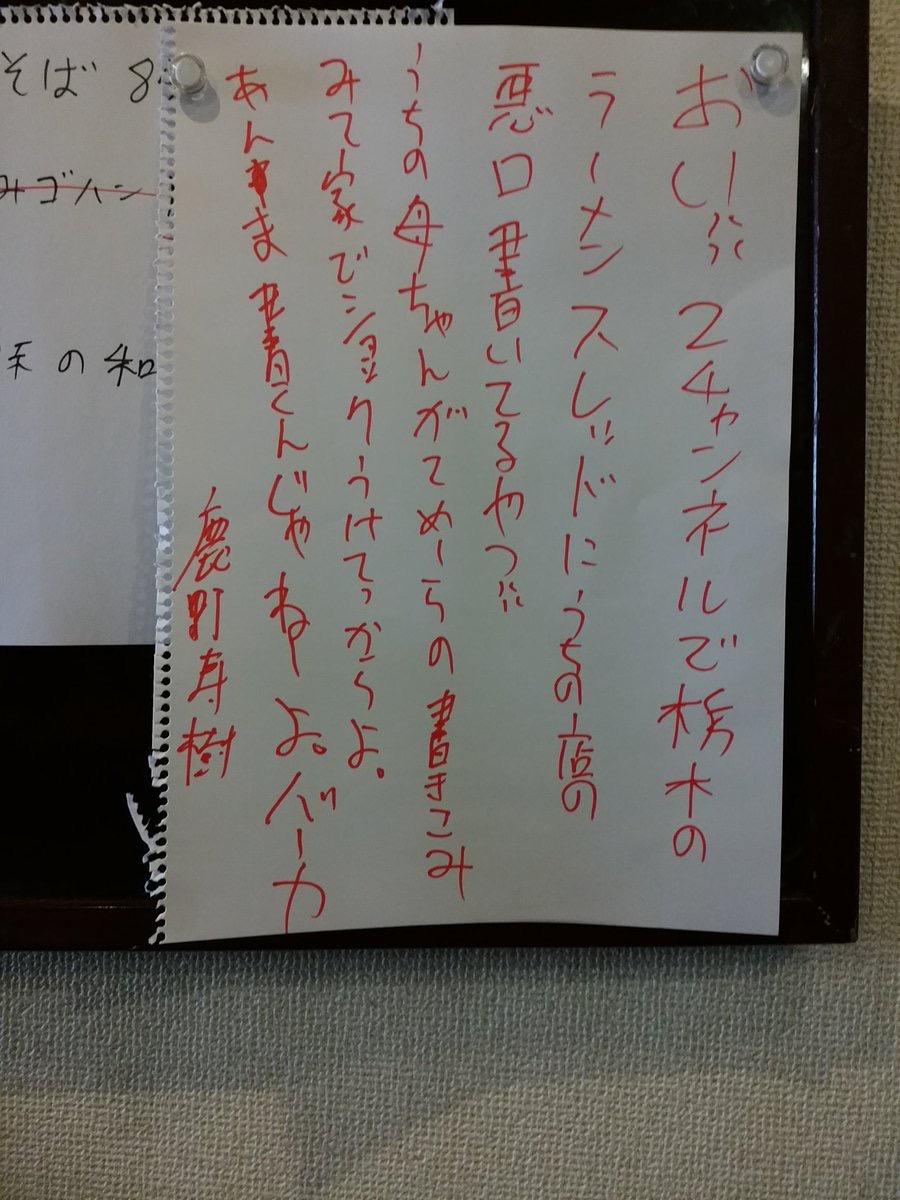 おい!! 2チャンネルで栃木の
ラーメンスレッドにうちの店の
悪口書いてるやつ!!
うちの母ちゃんがてめーらの書きこみ
みて家でショックうけてっからよ。
あんま書くんじゃねーよ。バーカ
鹿町寿樹
そば 8
みゴハン
の和